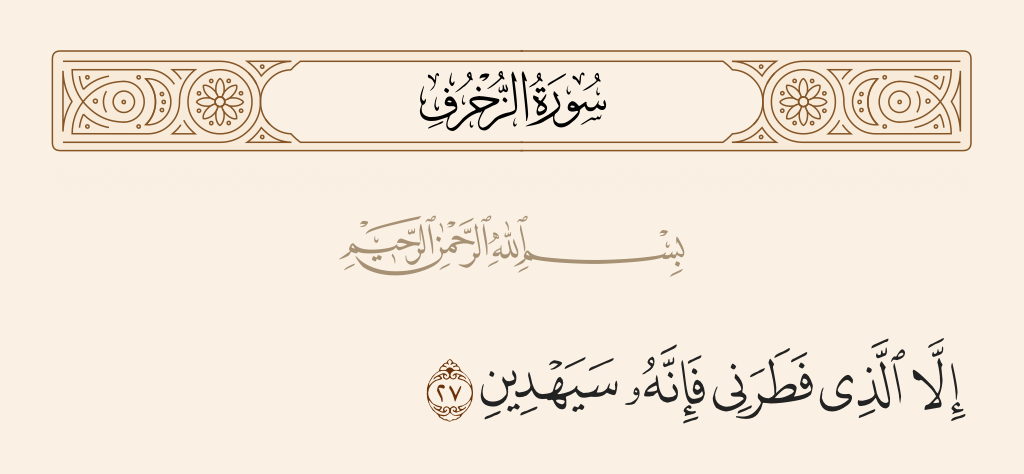 سُورَةُ الزُّخْرُفِ
بِسْمِ ٱللَّهِ ٱلرَّحْمَٰنِ ٱلرَّحِيمِ
إِلَّا ٱلَّذِى فَطَرَنِى فَإِنَّهُۥ سَيَهْدِينِ ٢٧